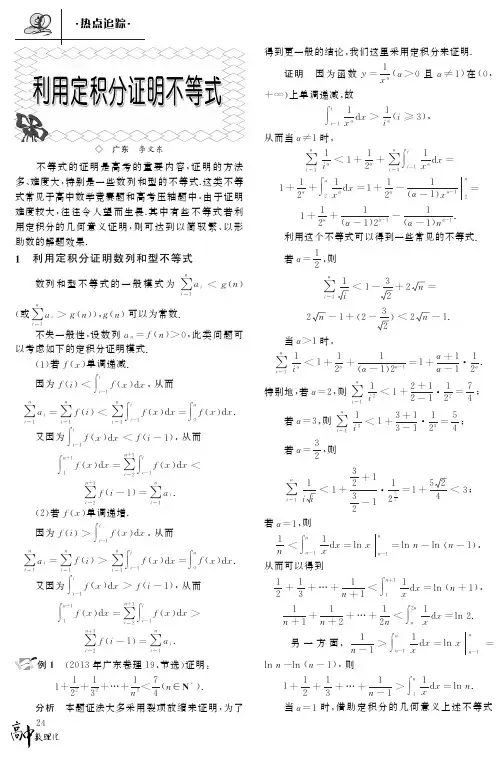 ·热点追踪·
利用定积分证明不等式
◇ 广东 李文东
不等式的证明是高考的重要内容,证明的方法
多、难度大,特别是一些数列和型的不等式.这类不等
式常见于高中数学竞赛题和高考压轴题中,由于证明
难度较大,往往令人望而生畏.其中有些不等式若利
用定积分的几何意义证明,则可达到以简驭繁、以形
助数的解题效果.
1 利用定积分证明数列和型不等式
数列和型不等式的一般模式为 $\sum_{i=1}^{n} a_i < g(n)$
(或$\sum_{i=1}^{n} a_i > g(n)$),g(n) 可以为常数.
不失一般性,设数列 $a_n = f(n) > 0$,此类问题可
以考虑如下的定积分证明模式.
(1)若 f(x)单调递减.
因为 $f(i) < \int_{i-1}^{i} f(x)dx$,从而
$\sum_{i=1}^{n} a_i = \sum_{i=1}^{n} f(i) < \sum_{i=1}^{n} \int_{i-1}^{i} f(x)dx = \int_{0}^{n} f(x)dx.$
又因为$\int_{i-1}^{i} f(x)dx < f(i-1)$,从而
$\int_{1}^{n+1} f(x)dx = \sum_{i=2}^{n+1} \int_{i-1}^{i} f(x)dx <$
$\sum_{i=2}^{n+1} f(i-1) = \sum_{i=1}^{n} a_i.$
(2)若 f(x)单调递增.
因为 $f(i) > \int_{i-1}^{i} f(x)dx$,从而
$\sum_{i=1}^{n} a_i = \sum_{i=1}^{n} f(i) > \sum_{i=1}^{n} \int_{i-1}^{i} f(x)dx = \int_{0}^{n} f(x)dx.$
又因为$\int_{i-1}^{i} f(x)dx > f(i-1)$,从而
$\int_{1}^{n+1} f(x)dx = \sum_{i=2}^{n+1} \int_{i-1}^{i} f(x)dx >$
$\sum_{i=2}^{n+1} f(i-1) = \sum_{i=1}^{n} a_i.$
例1 (2013年广东卷理19,节选)证明:
$1+\frac{1}{2^2}+\frac{1}{3^2}+\cdots+\frac{1}{n^2}<\frac{7}{4}(n\in \mathbf{N}^*).$
分析 本题证法大多采用裂项放缩来证明,为了
24
高中数理化
得到更一般的结论,我们这里采用定积分来证明.
证明 因为函数 $y=\frac{1}{x^\alpha}$(α>0 且 α≠1)在(0,
+∞)上单调递减,故
$\int_{i-1}^{i} \frac{1}{x^\alpha}dx > \frac{1}{i^\alpha}(i \geqslant 3),$
从而当 α≠1时,
$\sum_{i=1}^{n} \frac{1}{i^\alpha} < 1+\frac{1}{2^\alpha}+\sum_{i=3}^{n} \int_{i-1}^{i} \frac{1}{x^\alpha}dx =$
$1+\frac{1}{2^\alpha}+\int_{2}^{n} \frac{1}{x^\alpha}dx = 1+\frac{1}{2^\alpha}-\frac{1}{(\alpha-1)x^{\alpha-1}}\Big|_{2}^{n} =$
$1+\frac{1}{2^\alpha}+\frac{1}{(\alpha-1)2^{\alpha-1}}-\frac{1}{(\alpha-1)n^{\alpha-1}}.$
利用这个不等式可以得到一些常见的不等式.
若 $\alpha=\frac{1}{2}$,则
$\sum_{i=1}^{n} \frac{1}{\sqrt{i}} < 1-\frac{3}{\sqrt{2}}+2\sqrt{n} =$
$2\sqrt{n}-1+(2-\frac{3}{\sqrt{2}}) < 2\sqrt{n}-1.$
当 α>1时,
$\sum_{i=1}^{n} \frac{1}{i^\alpha} < 1+\frac{1}{2^\alpha}+\frac{1}{(\alpha-1)2^{\alpha-1}} = 1+\frac{\alpha+1}{\alpha-1}\cdot\frac{1}{2^\alpha}.$
特别地,若 α=2,则 $\sum_{i=1}^{n} \frac{1}{i^2} < 1+\frac{2+1}{2-1}\cdot\frac{1}{2^2}=\frac{7}{4}$;
若 α=3,则 $\sum_{i=1}^{n} \frac{1}{i^3} < 1+\frac{3+1}{3-1}\cdot\frac{1}{2^3}=\frac{5}{4}$;
若 $\alpha=\frac{3}{2}$,则
$\sum_{i=1}^{n} \frac{1}{i\sqrt{i}} < 1+\frac{\frac{3}{2}+1}{\frac{3}{2}-1}\cdot\frac{1}{2^{\frac{3}{2}}} = 1+\frac{5\sqrt{2}}{4} < 3$;
若 α=1,则
$\frac{1}{n} < \int_{n-1}^{n} \frac{1}{x}dx = \ln x\Big|_{n-1}^{n} = \ln n-\ln (n-1),$
从而可以得到
$\frac{1}{2}+\frac{1}{3}+\cdots+\frac{1}{n+1} < \int_{1}^{n+1} \frac{1}{x}dx = \ln (n+1),$
$\frac{1}{n+1}+\frac{1}{n+2}+\cdots+\frac{1}{2n} < \int_{n}^{2n} \frac{1}{x}dx = \ln 2.$
另一方面,$\frac{1}{n-1} > \int_{n-1}^{n} \frac{1}{x}dx = \ln x\Big|_{n-1}^{n} =$
ln n-ln (n-1),则
$1+\frac{1}{2}+\frac{1}{3}+\cdots+\frac{1}{n-1} > \int_{1}^{n} \frac{1}{x}dx = \ln n.$
当 α=1时,借助定积分的几何意义上述不等式